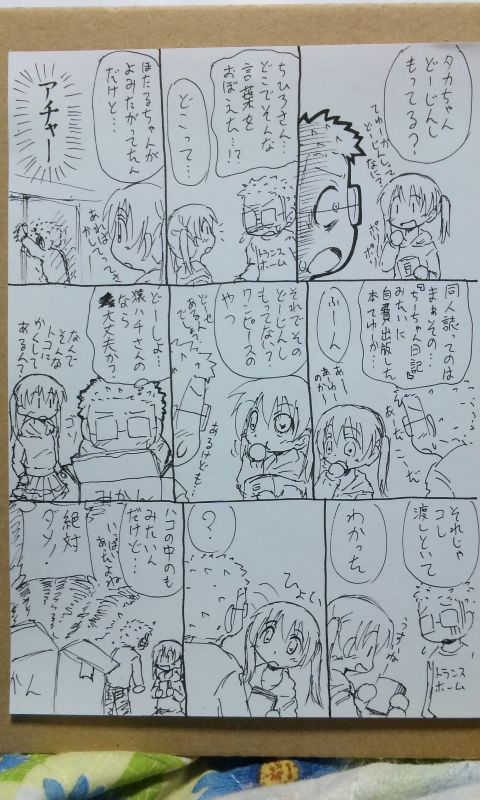 タカちゃん
どーじんし
もってる?
てゆーか
どーじんしって
なに?
ポポポ
ちひろさん…
どこでそんな
言葉を
おぼえた…!?
どこって…
トランス
ホーム
ほたるちゃんが
よみたがってたん
だけど…
アチャー
同人誌ってのは
まぁその…
『ちーちゃん日記』
みたいに
自費出版した
本てゆか…
ふーん
それでその
どーじんし
もってない?
ワンピースの
やつ
あるけども…
どーしよ…
猿ハチさんの
なら
大丈夫か?
なんで
そんな
トコに
かくして
あるん?
みかん
それじゃ
コレ
渡しといて
わかった
トランス
ホーム
ひょい
?
ハコの中のも
みたいん
だけど…
いっぱい
あったよね
絶対
ダメ!
かん